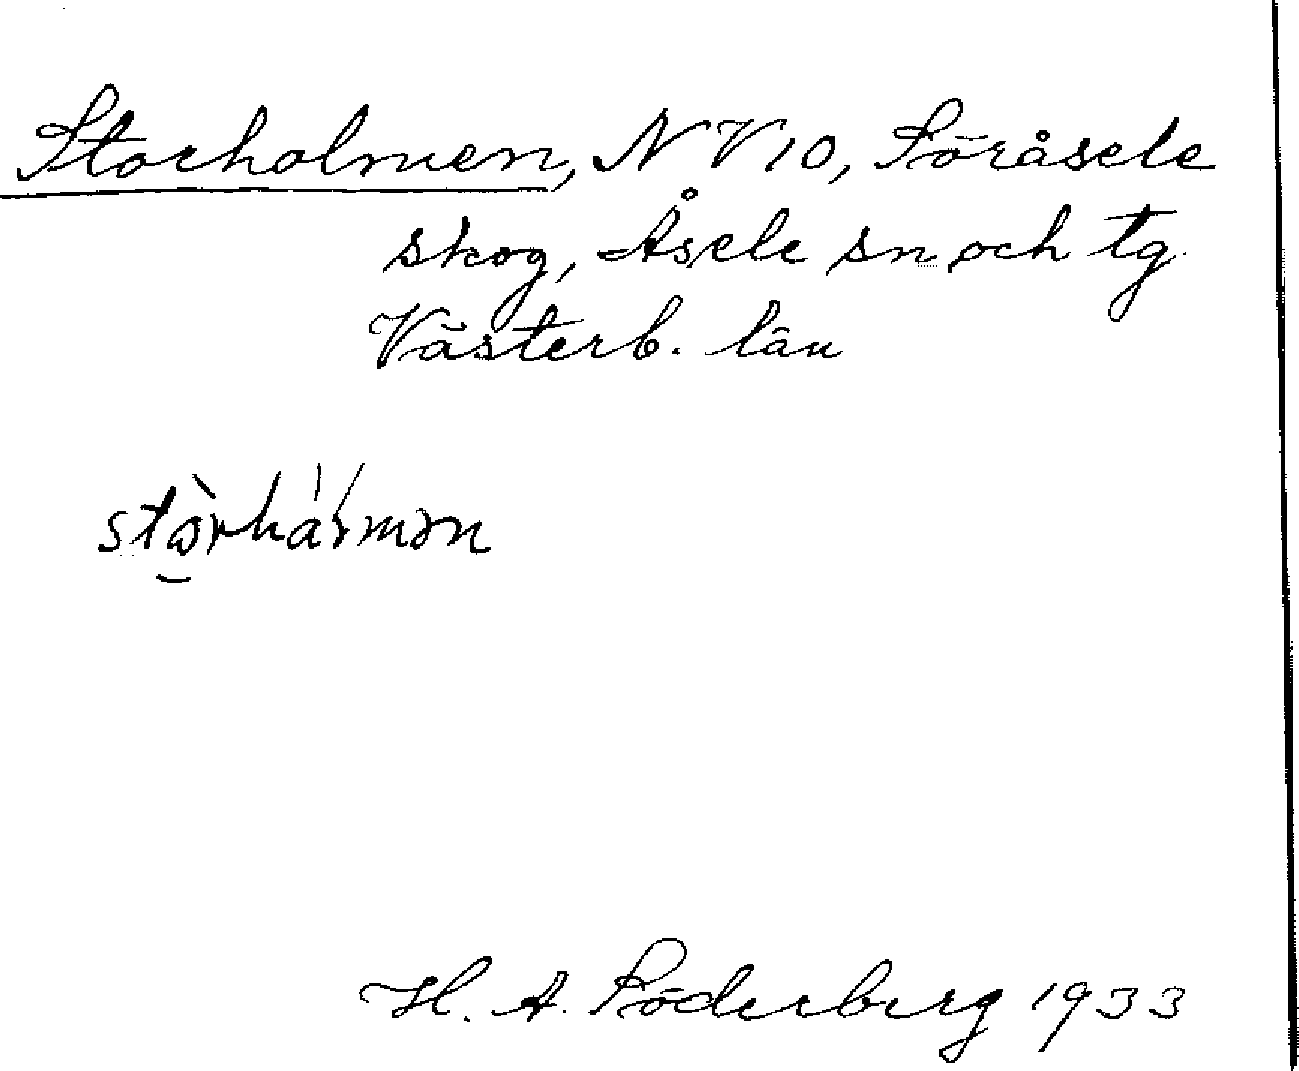 Storholmen, NV10, Söråsele
skog, Åsele sn och tg.
Västerb. län
H. A. Söderberg 1933